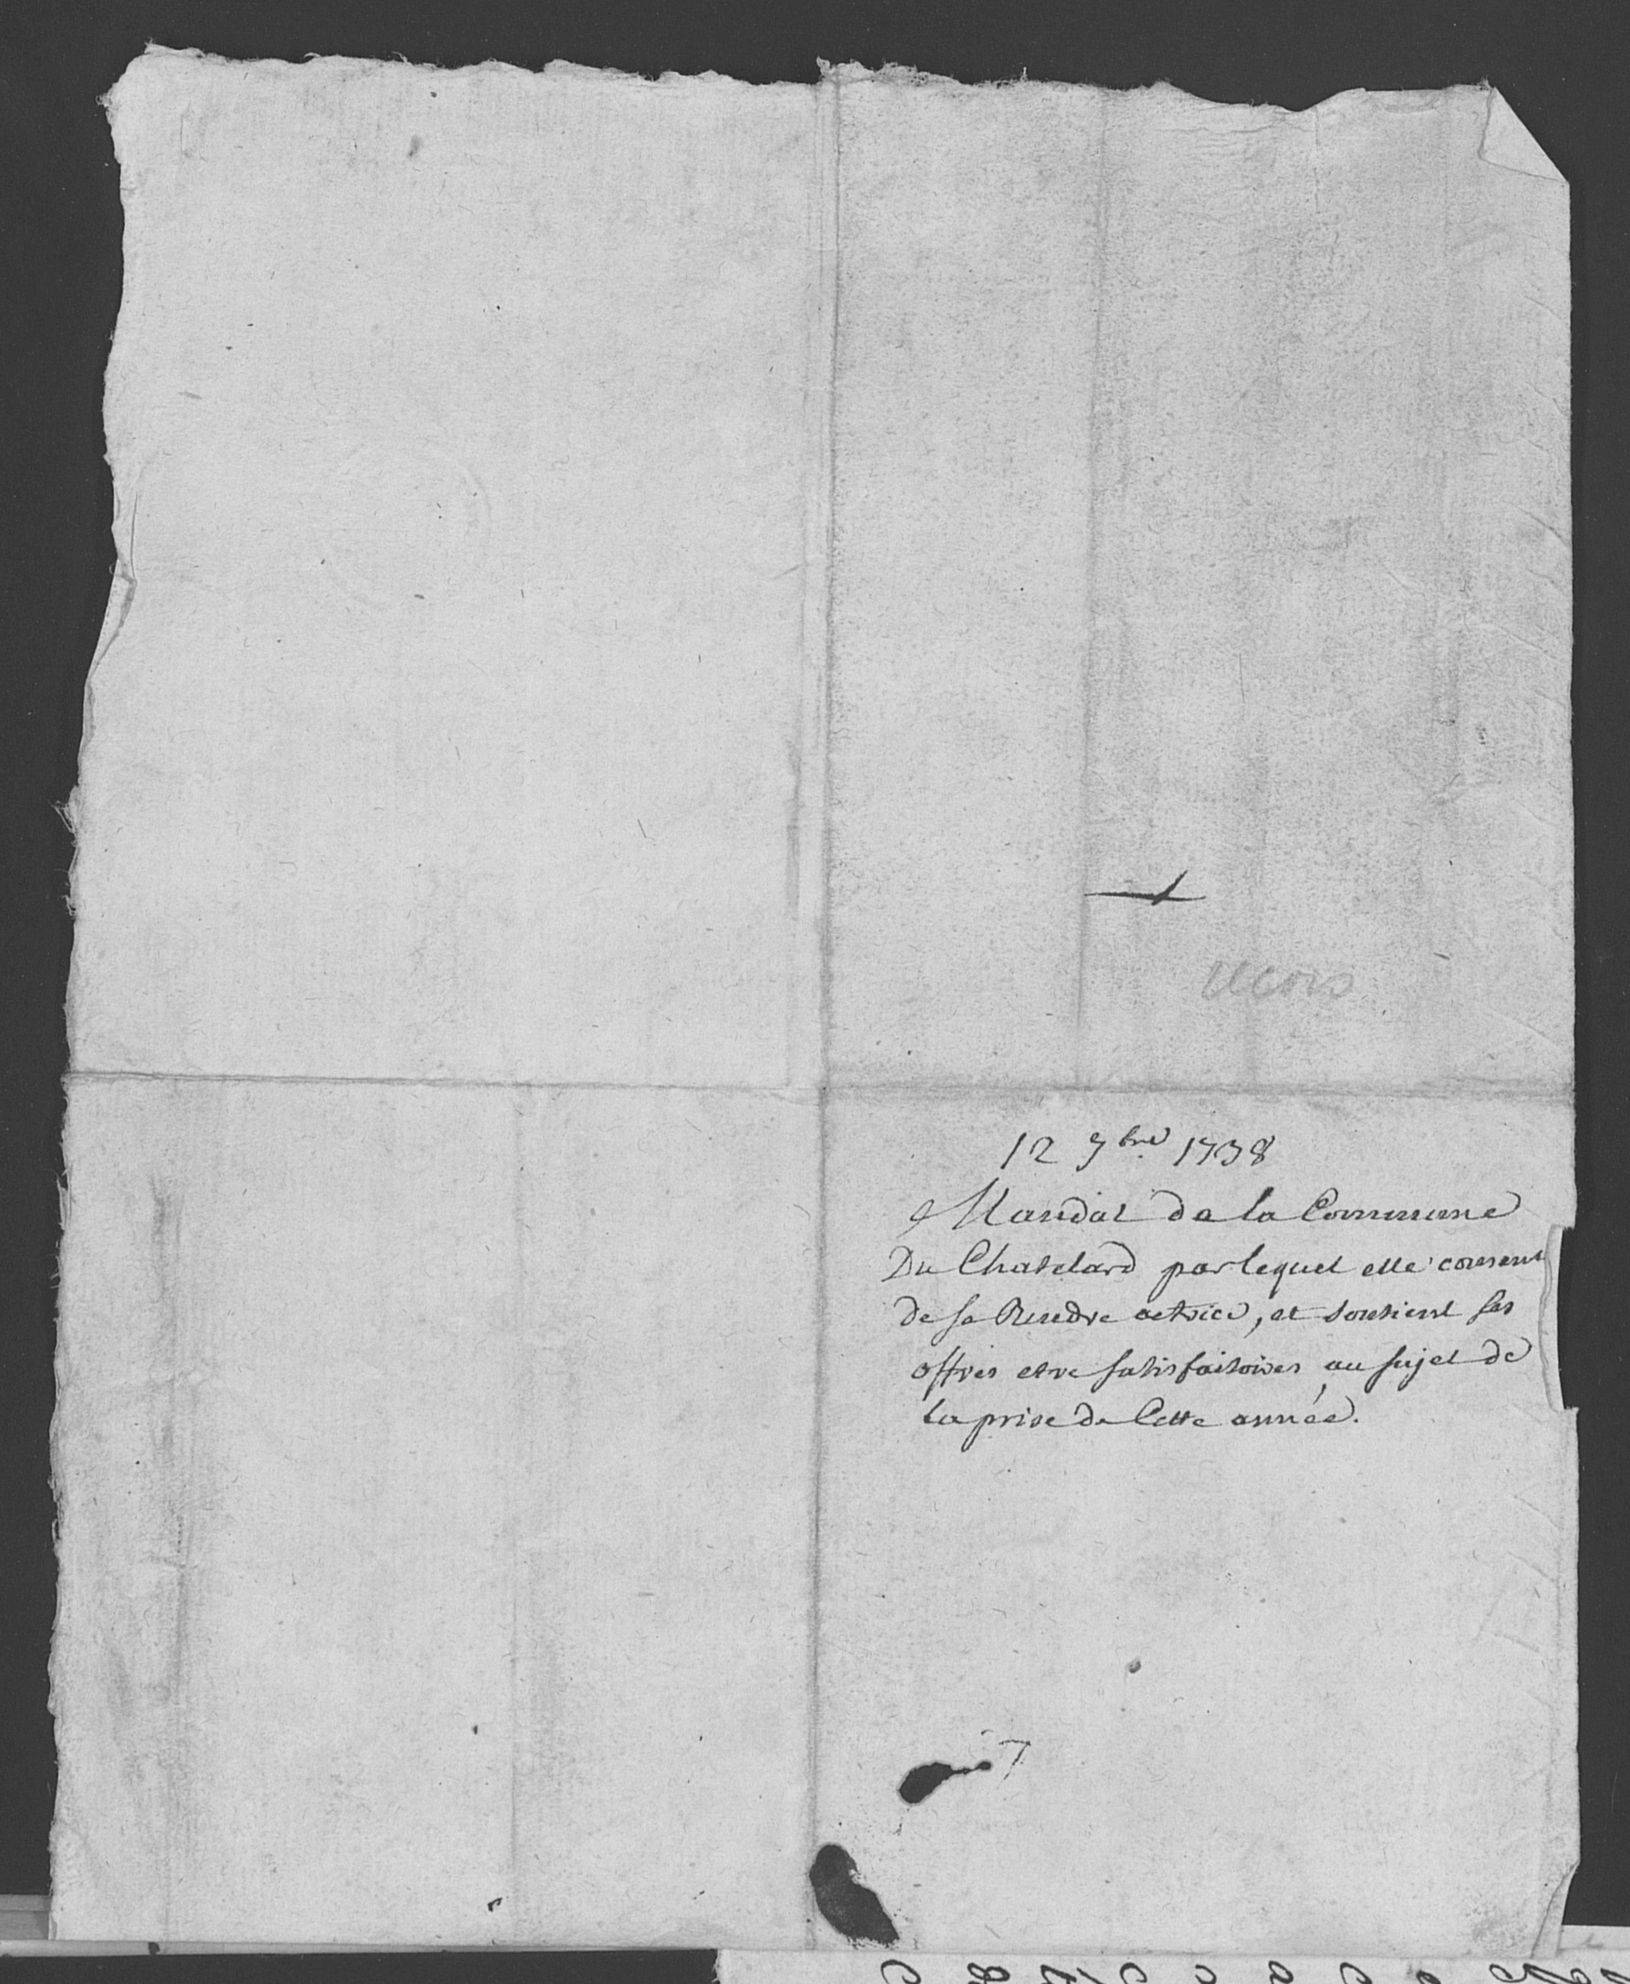 12 7bre 1738
Mandat de la Commune
Du Chatelard par lequel elle consent
de se Rendre actrice, et soutient ses
offres etre satisfaitoires au sujet de
la prise de Cette année.
7